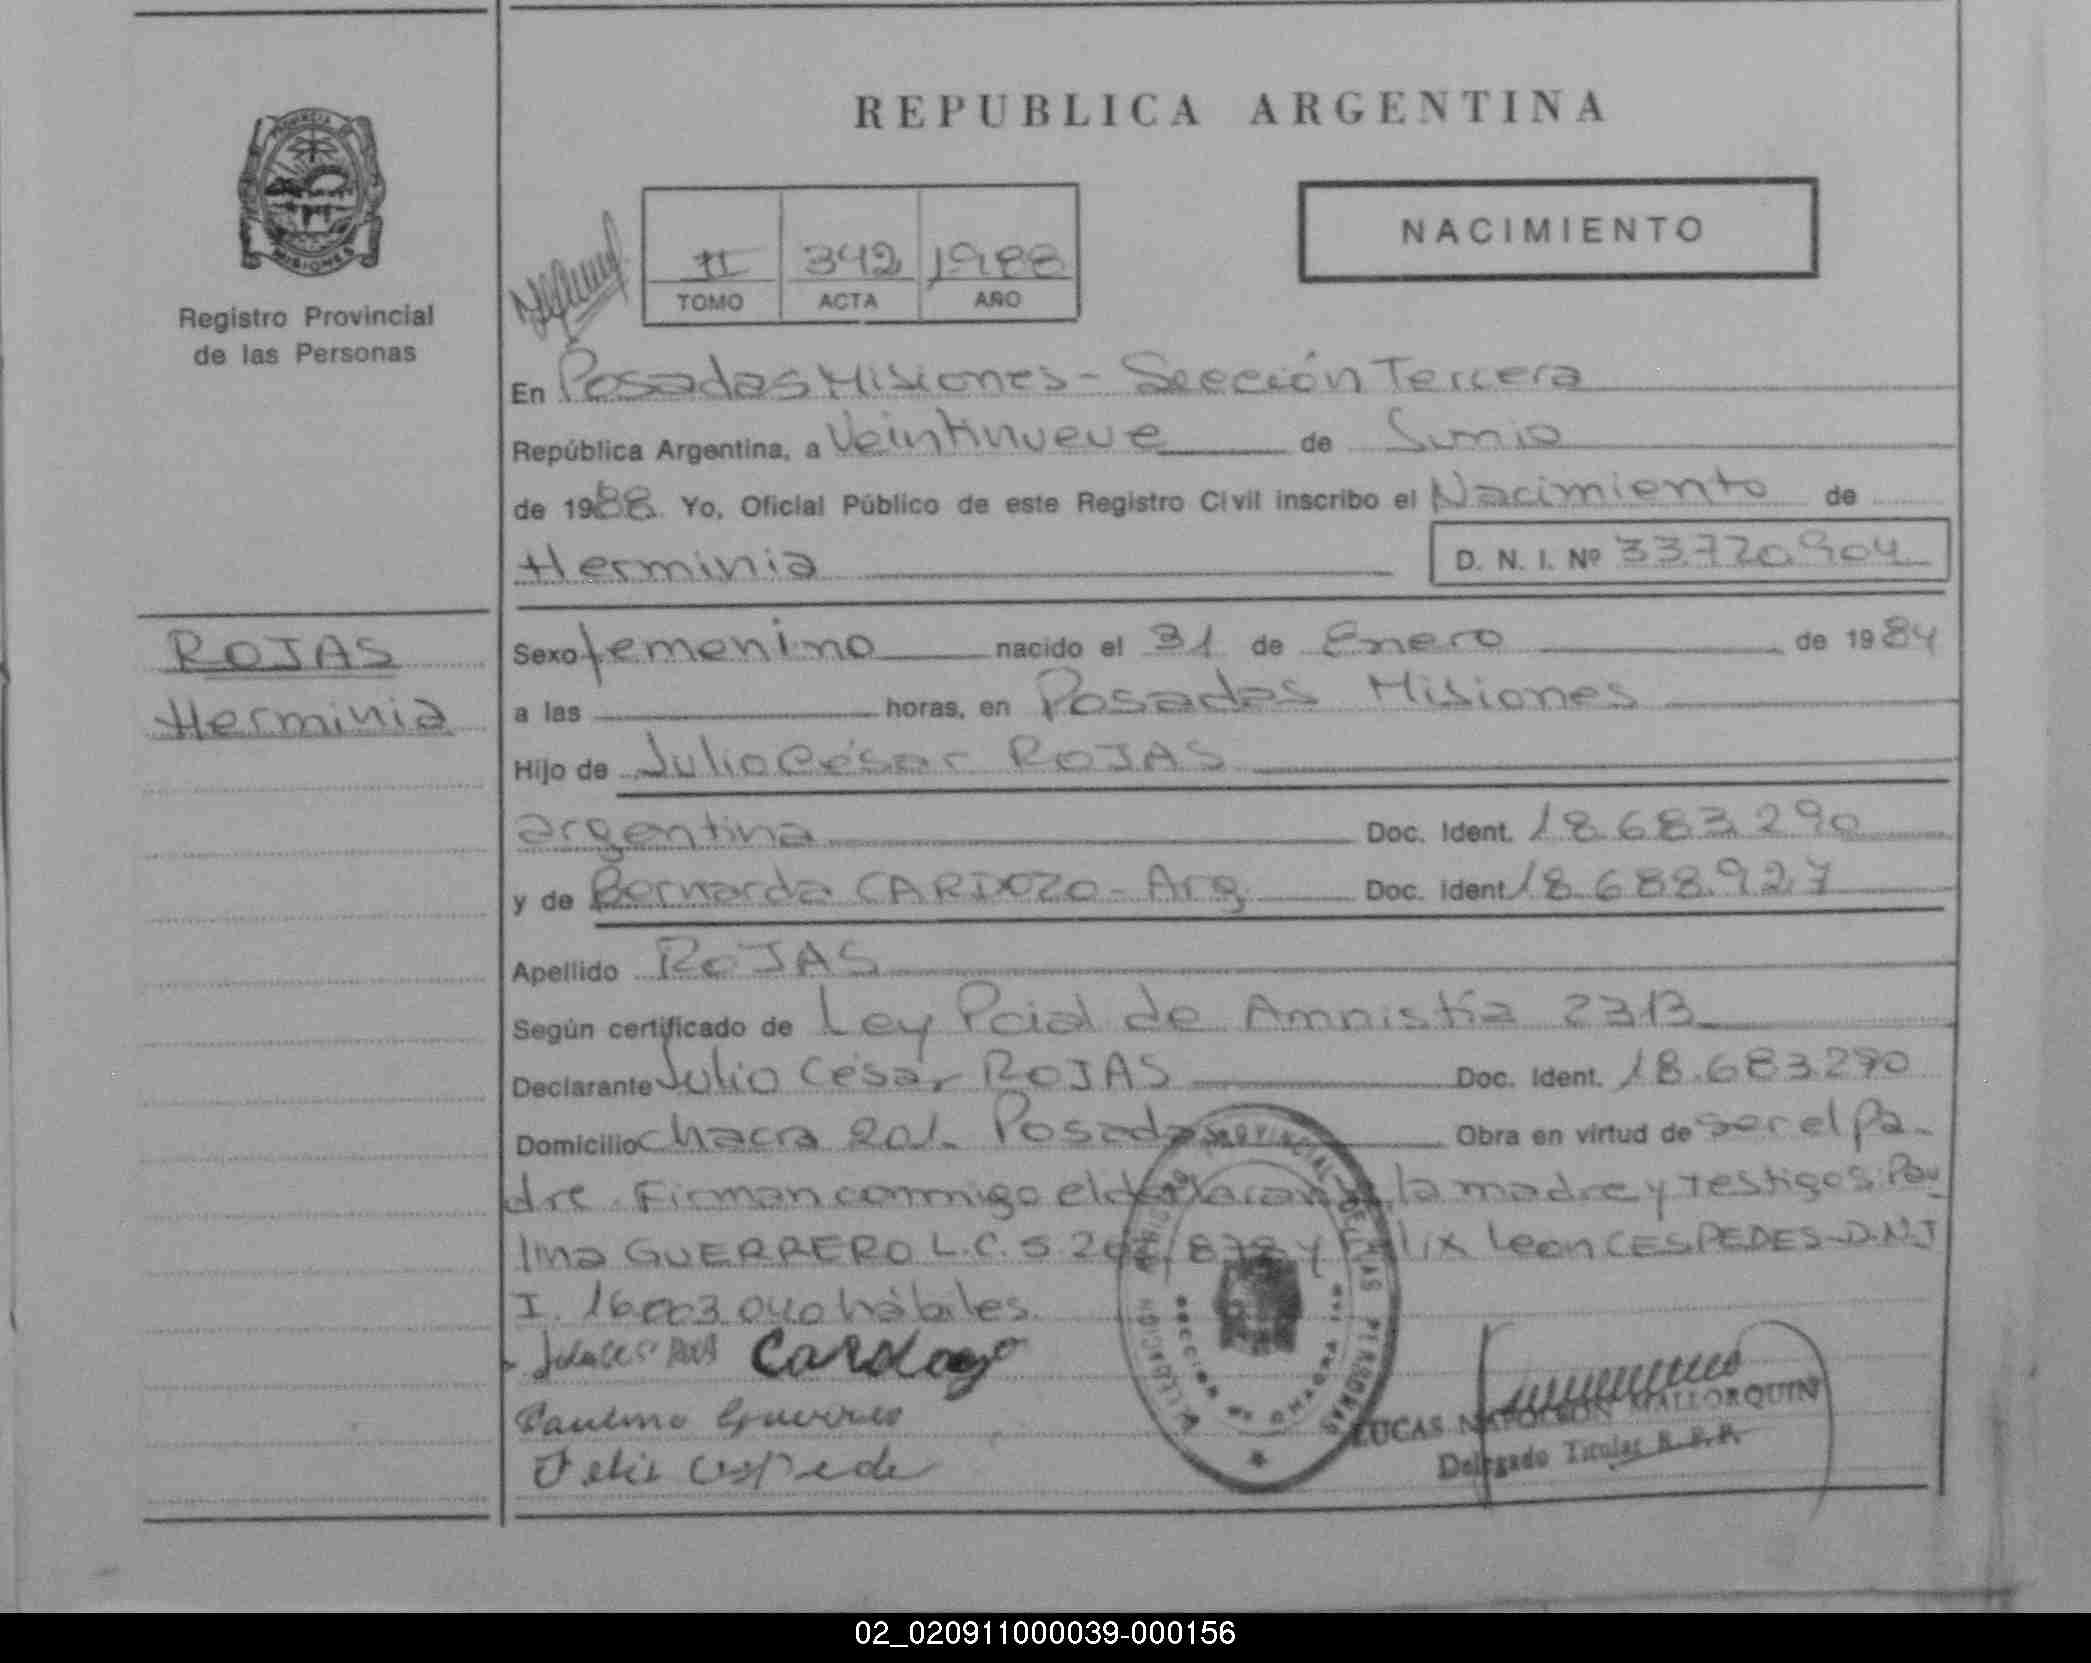 REPUBLICA ARGENTINA
PROVINCIA DE
MISIONES
Registro Provincial
de las Personas
II 342 1988
TOMO ACTA AÑO
NACIMIENTO
En Posadas Misiones - Sección Tercera
República Argentina, a Veintinueve de Junio
de 1988. Yo, Oficial Público de este Registro Civil inscribo el Nacimiento de
Herminia D. N. I. Nº 33.720.904
ROJAS
Herminia
Sexo femenino nacido el 31 de Enero de 1984
a las horas, en Posadas Misiones
Hijo de Julio César ROJAS
argentina Doc. Ident. 18.683.290
y de Bernarda CARDOZO - Arg. Doc. Ident 18.688.927
Apellido ROJAS
Según certificado de Ley Pcial de Amnistía 2313
Declarante Julio César ROJAS Doc. Ident. 18.683.290
Domicilio Chacra 201. Posadas Obra en virtud de ser el pa-
dre. Firman conmigo el declarante, la madre y testigos: Pau-
lina GUERRERO L.C. 5. y Félix Leon CESPEDES - D.N.I
I. 16.003.040 hábiles.
Cardozo
Guerrero
Felix Cespede
LUCAS NAPOLEON MALLORQUIN
Delegado Titular R. P. P.
PROVINCIAL DE LAS PERSONAS
DELEGACION
SECCION 3a
02_020911000039-000156